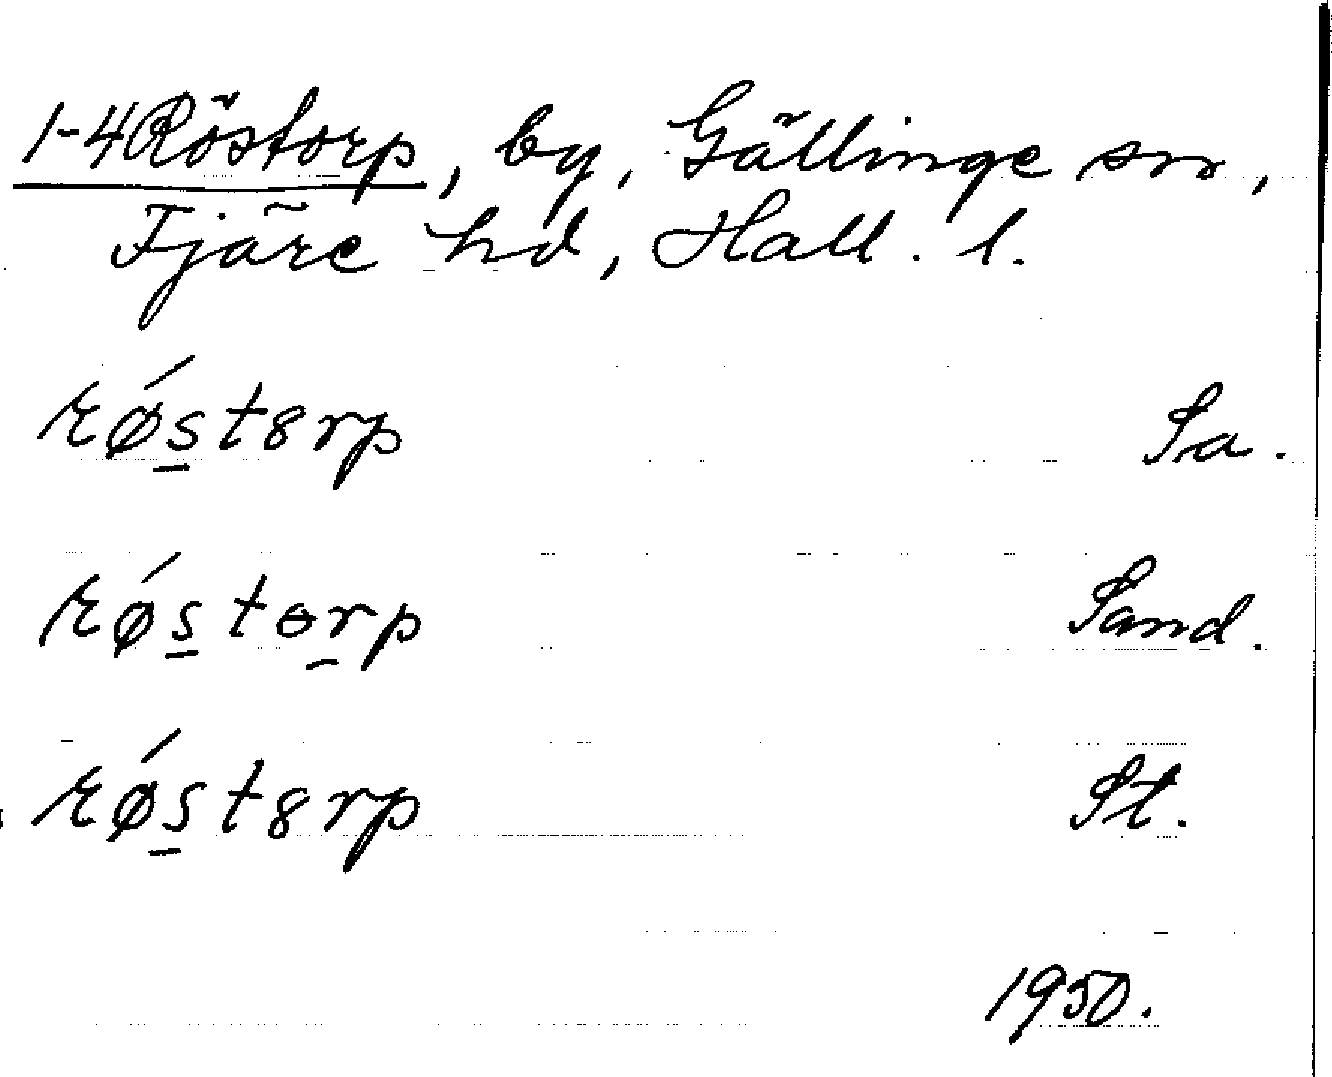 1-4 Röstorp, by, Gällinge sn,
Fjäre hd, Hall. l.
rǿstȣrp Sa.
rǿstɵrp Sand.
rǿstȣrp St.
1950.